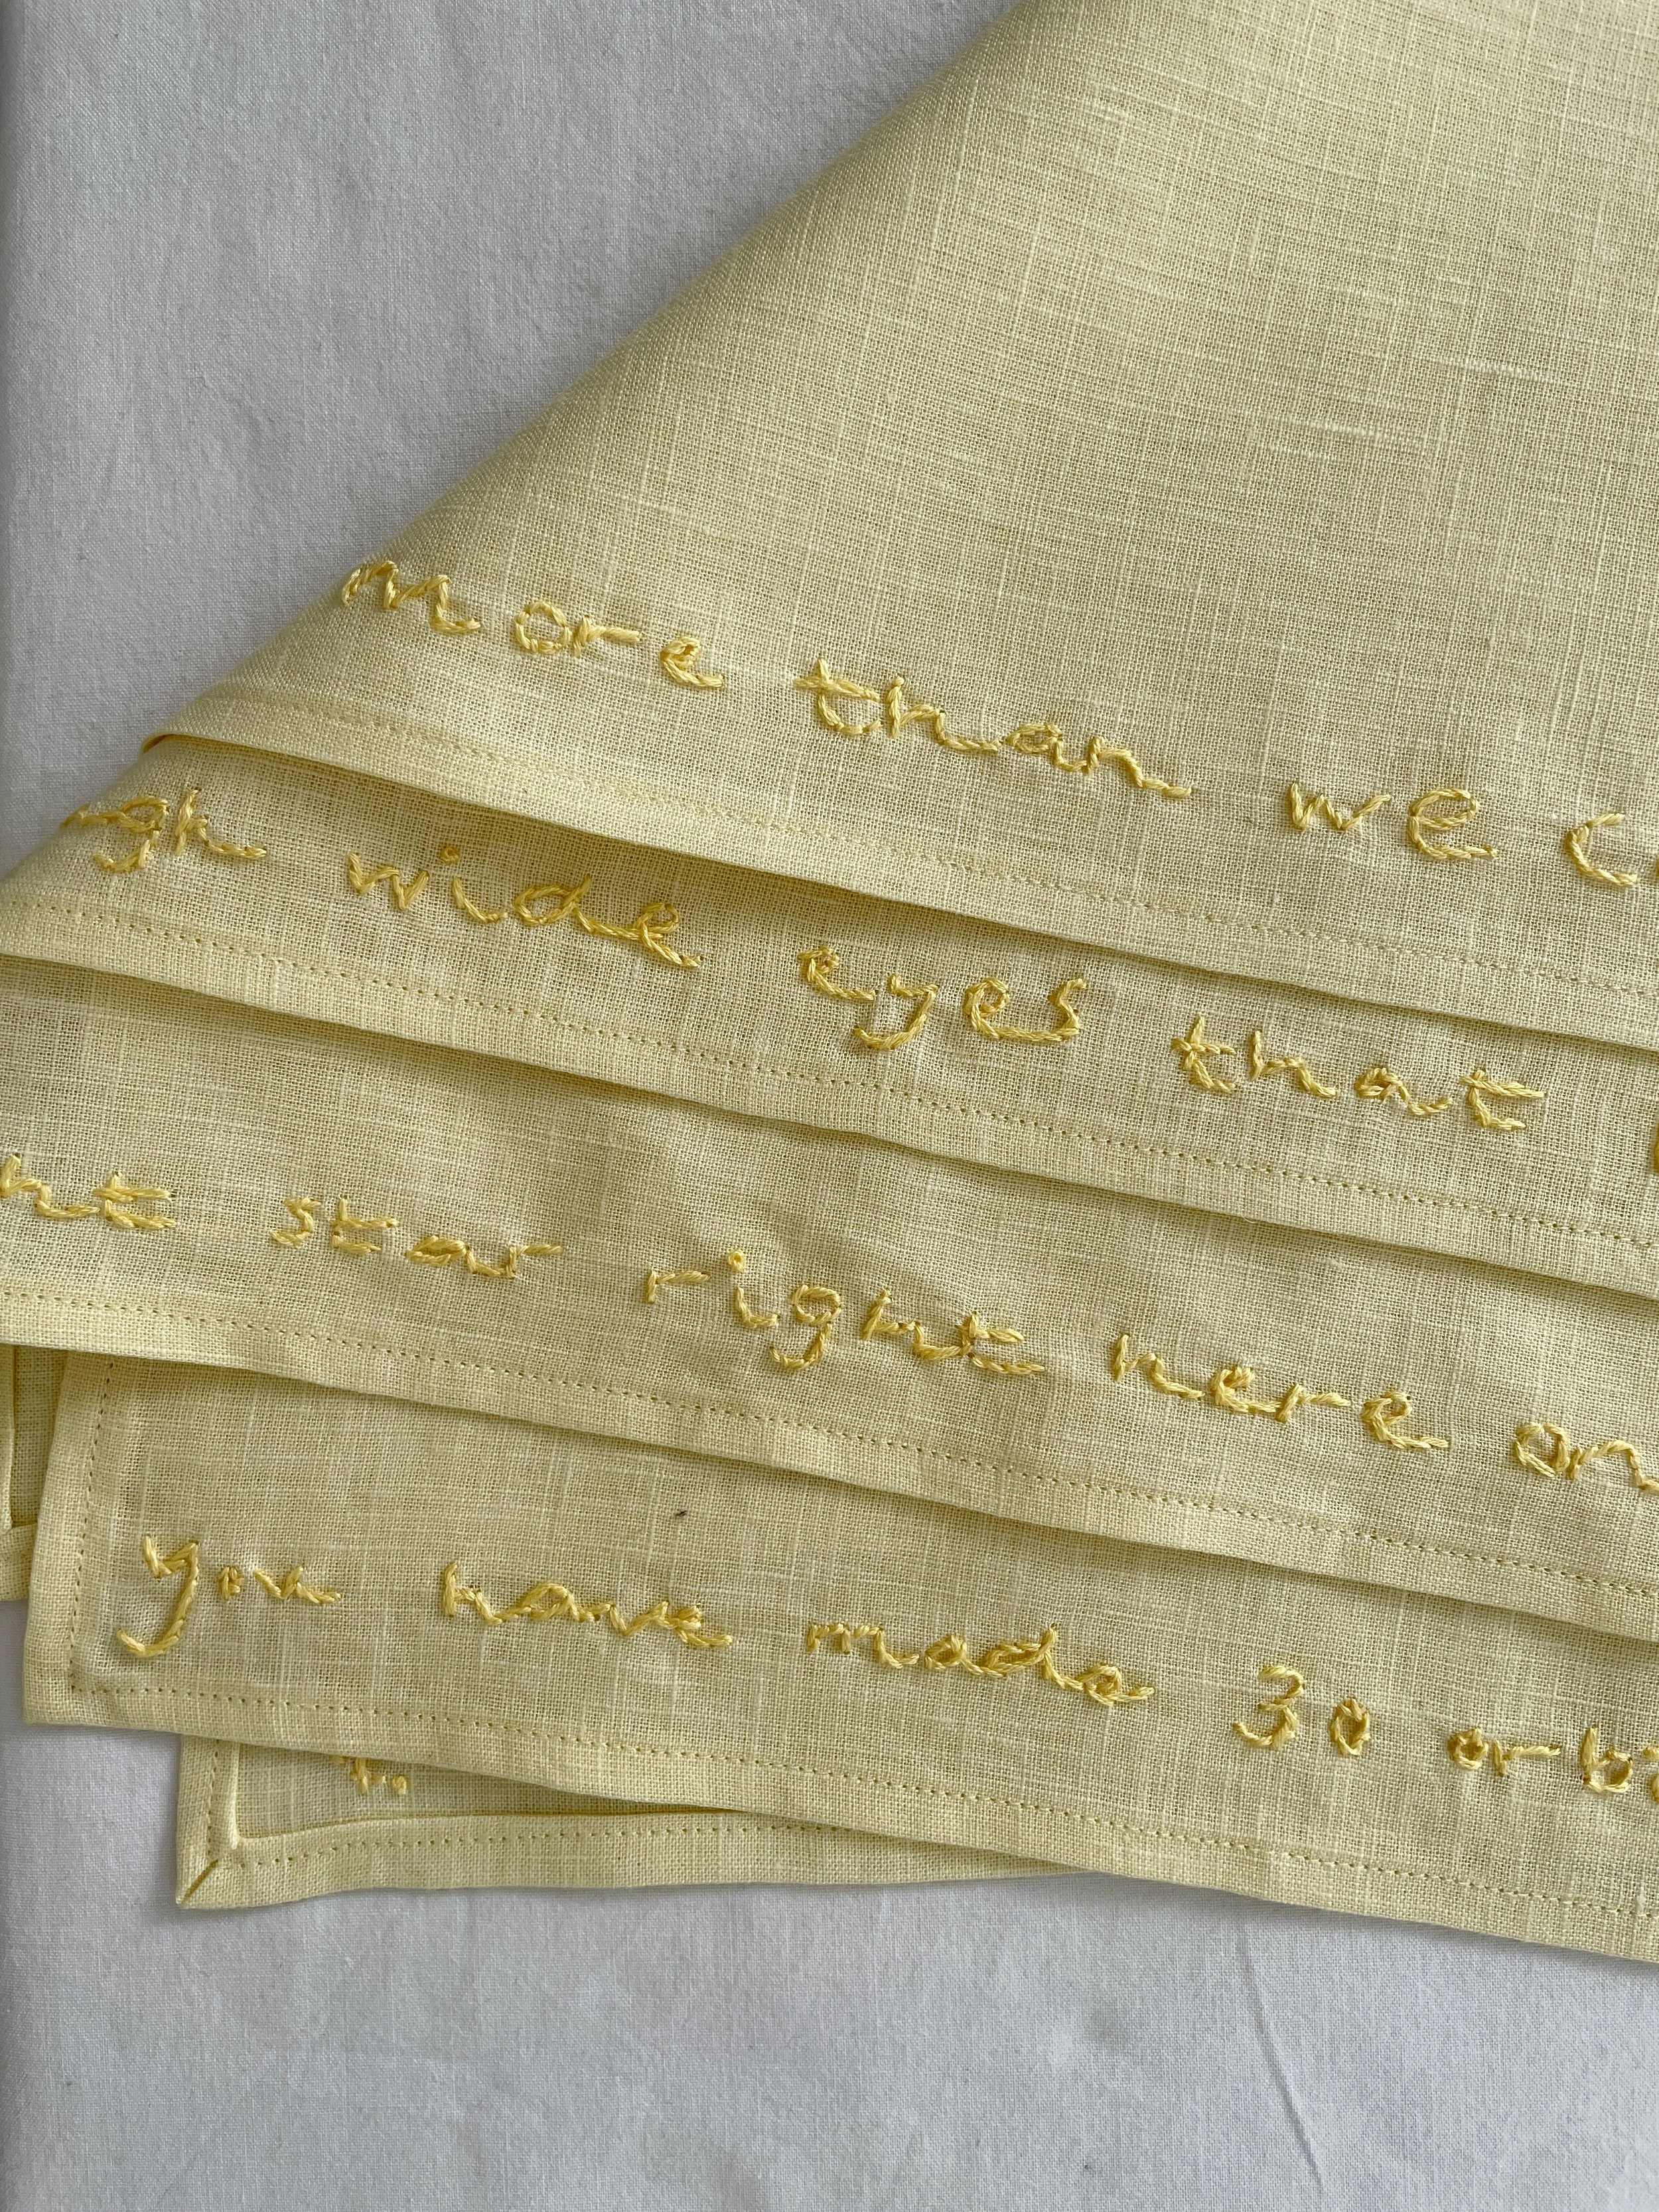 more than we c
gh wide eyes that
ht star right here on
you have made 30 orbi